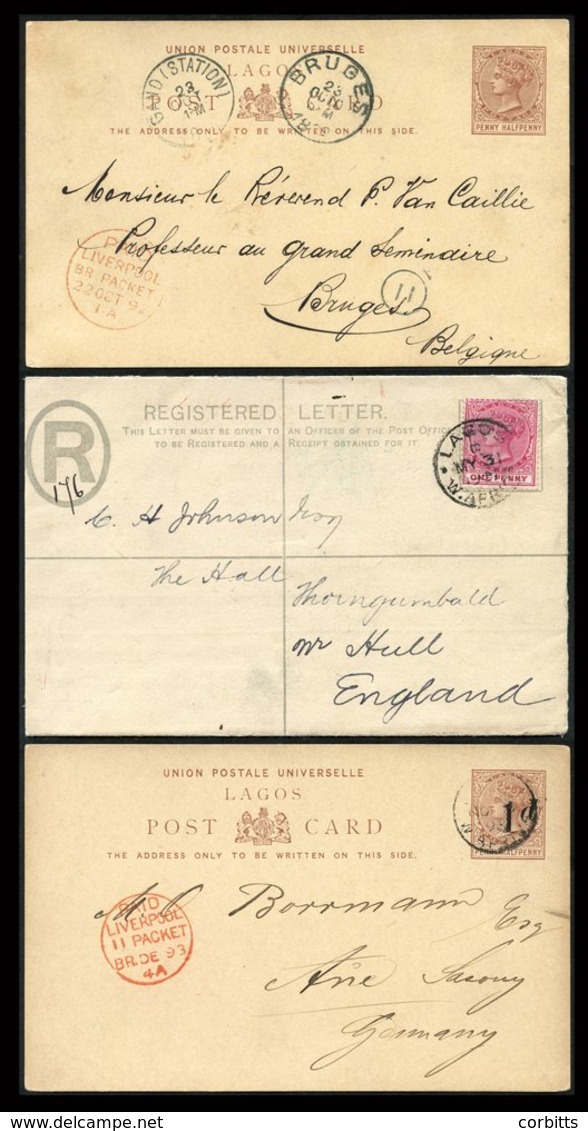 UNION POSTALE UNIVERSELLE
LAGOS
POST CARD
THE ADDRESS ONLY TO BE WRITTEN ON THIS SIDE.
PENNY HALFPENNY
GAND (STATION)
23
BRUGES
23
OCT
Monsieur le Révérend P. Van Caillie
Professeur au Grand Séminaire
Bruges
Belgique
PAID
LIVERPOOL
BR PACKET
22 OCT 92
1A
11
R
REGISTERED LETTER.
THIS LETTER MUST BE GIVEN TO AN OFFICER OF THE POST OFFICE
TO BE REGISTERED AND A RECEIPT OBTAINED FOR IT.
176
ONE PENNY
LAGOS
MY 31
W. AFRI
C. H Johnson Esq
The Hall
Thorngumbald
nr Hull
England
UNION POSTALE UNIVERSELLE
LAGOS
POST CARD
THE ADDRESS ONLY TO BE WRITTEN ON THIS SIDE.
1d
HALFPENNY
PAID
LIVERPOOL
11 PACKET
BR.DE 93
4A
Borrmann Esq
Aue Saxony
Germany
delcampe.net
corbitts